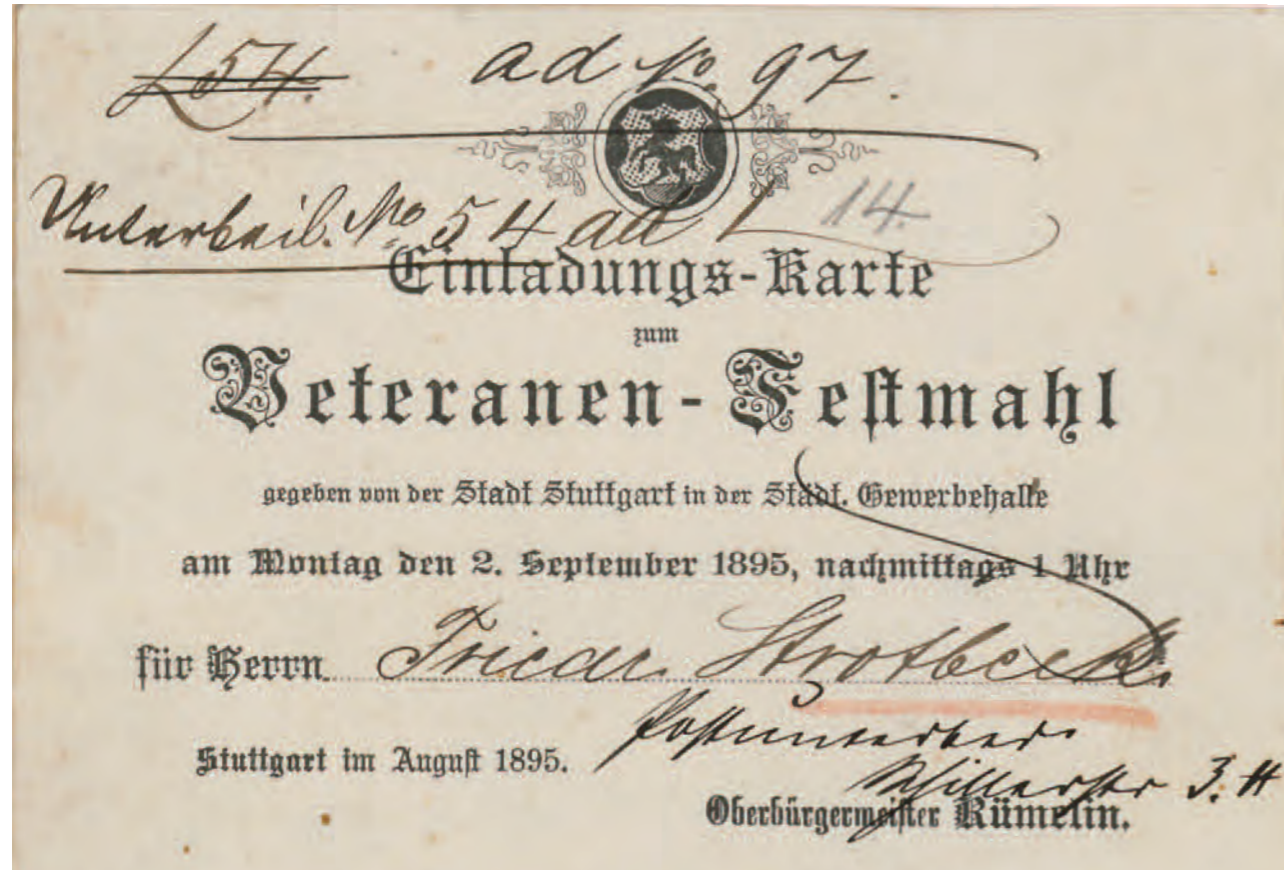 L 54. ad No. 97.
Unterbeil. No 54 ad L 14.
Einladungs-Karte
zum
Veteranen-Festmahl
gegeben von der Stadt Stuttgart in der Städt. Gewerbehalle
am Montag den 2. September 1895, nachmittags 1 Uhr
für Herrn Friedr. Strotbeck.
Postunterbed.
Stuttgart im August 1895.
Schillerstr 3. II
Oberbürgermeister Rümelin.